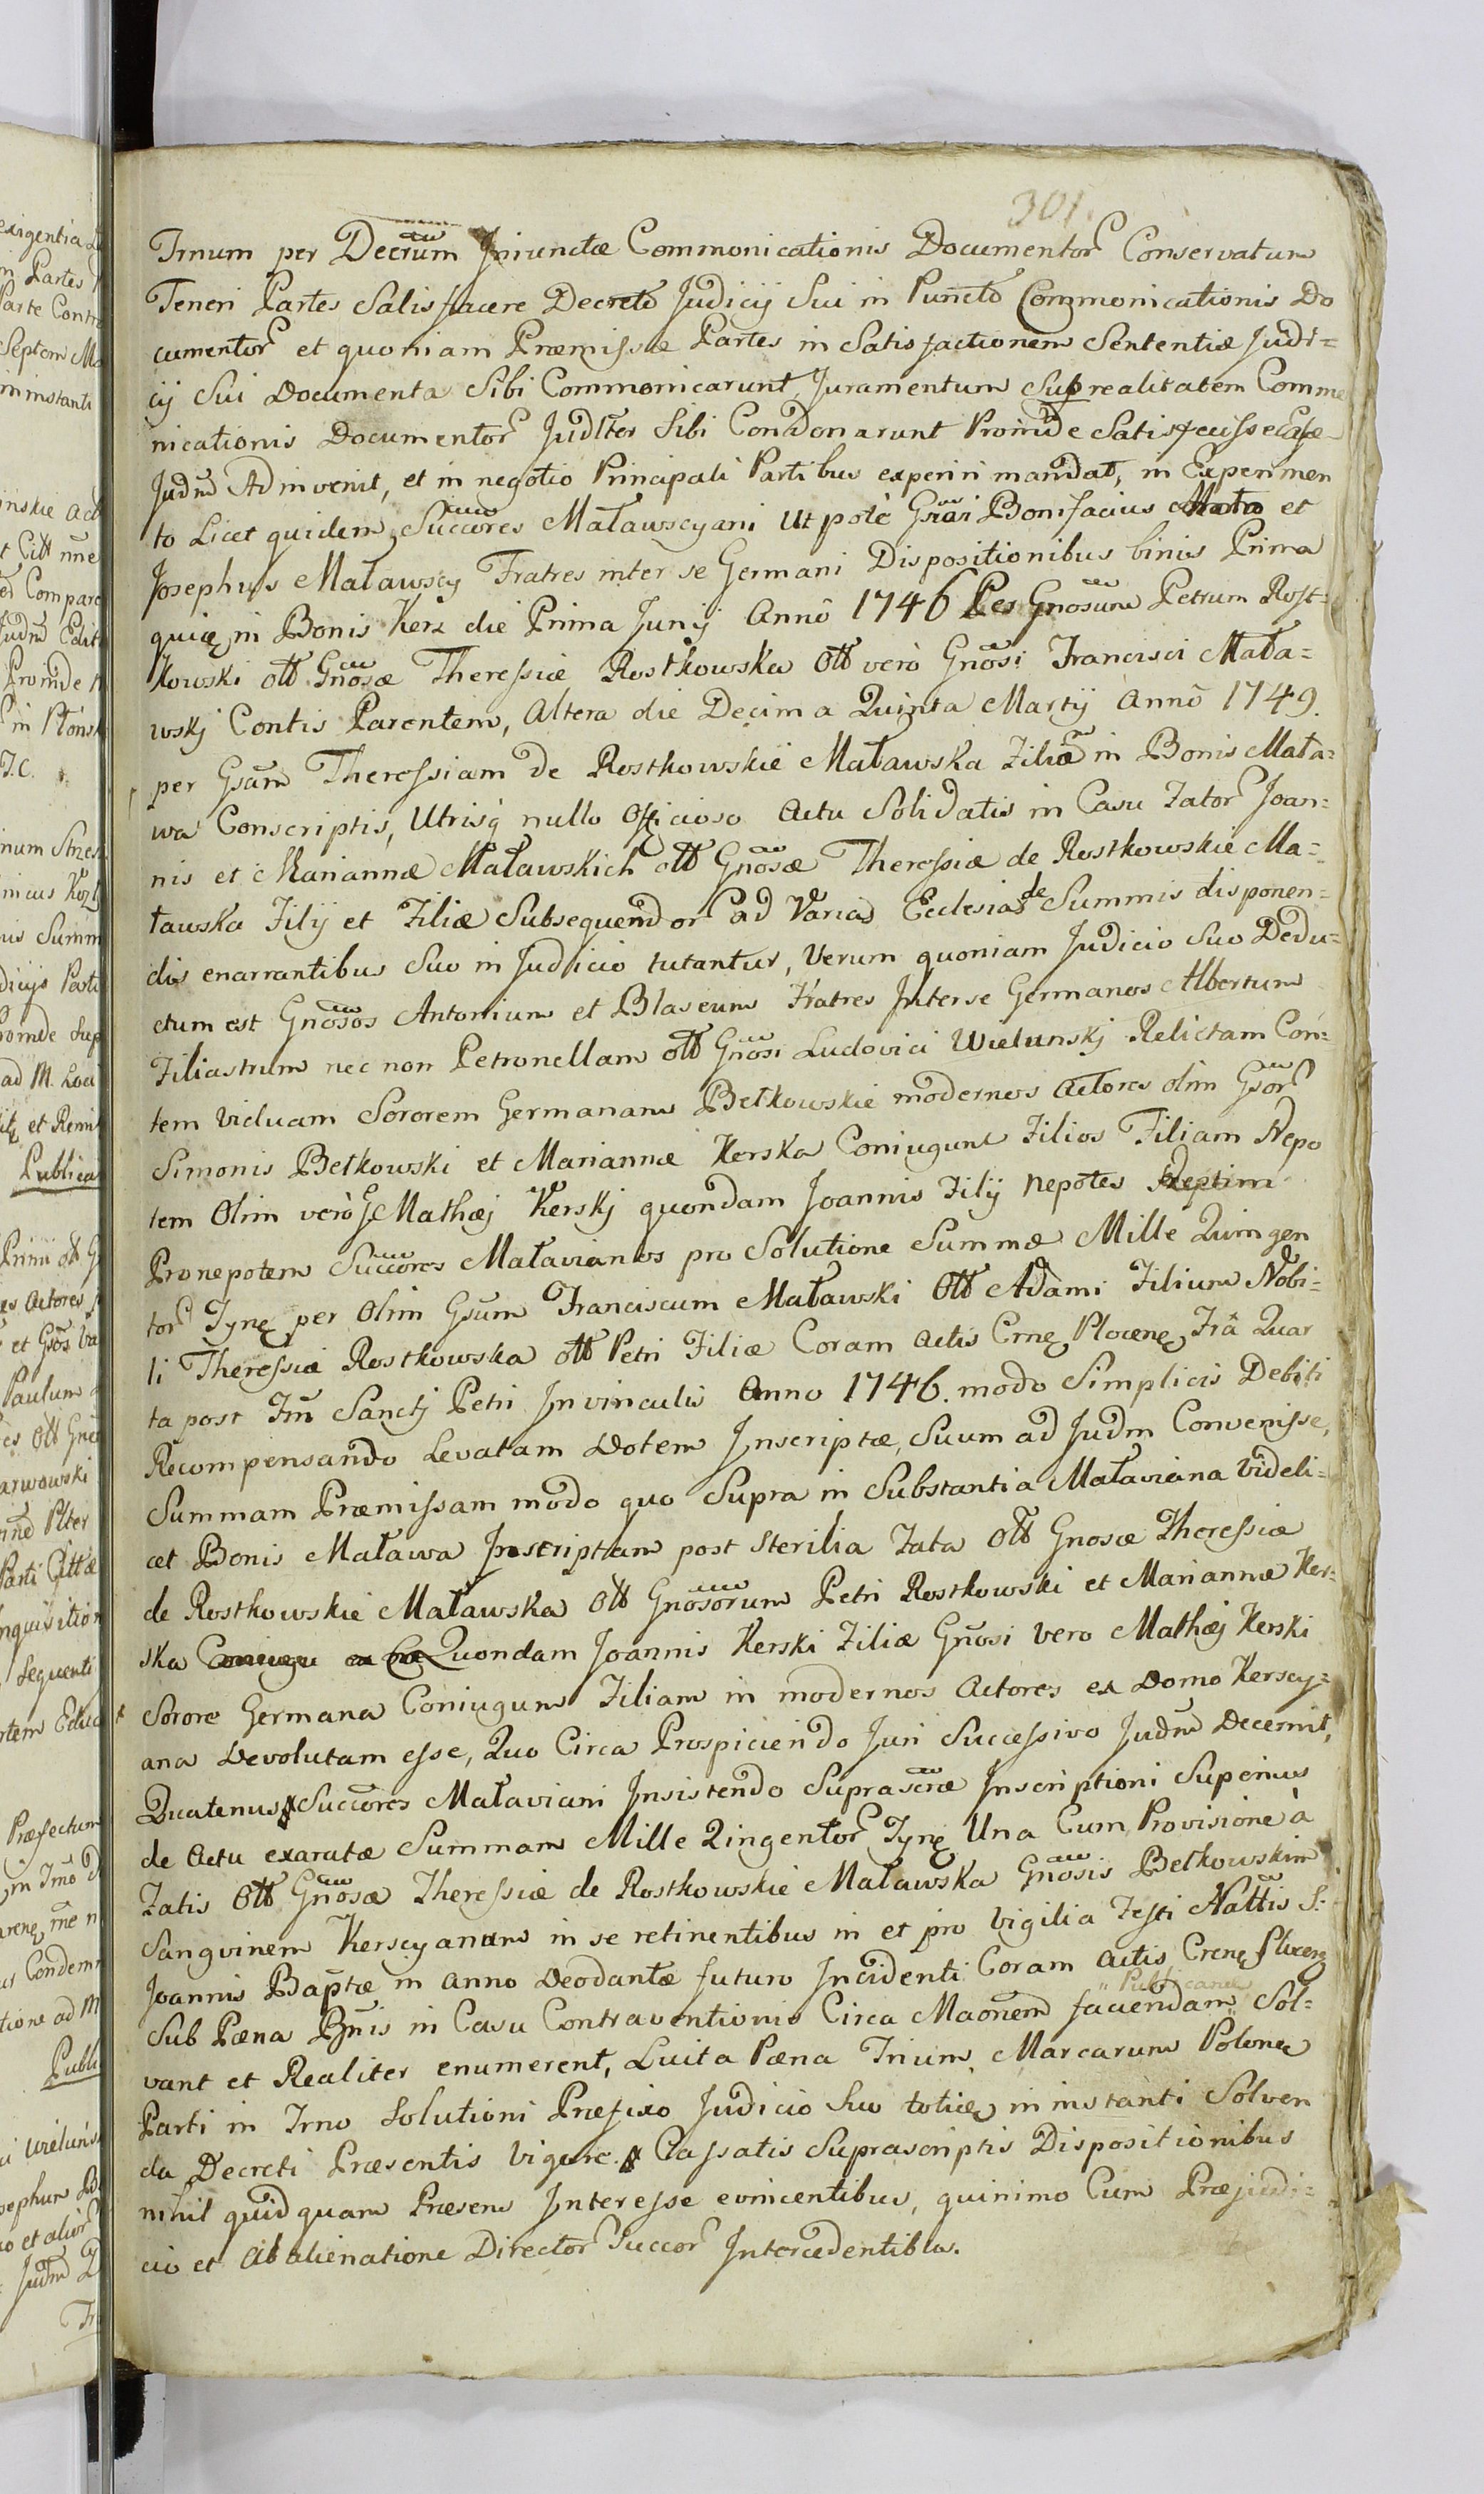 301.
Trnum per Decrūm Iniunctæ Commonicationis Documentor Conservatum
Teneri Partes Satisfacere Decreto Judicij Sui in Puncto Commonicationis Do
cumentor et quoniam Præmissæ Partes in Satisfactionem Sententiæ Judi=
cij Sui Documenta Sibi Commonicarunt, Juramentum Sup realitatem Commu
nicationis Documentor Judlter Sibi Condonarunt Proinde Satisfecisse Esse
Judm̄ Adinvenit, et in negotio Principali Partibus experiri mandat, in Experimen
to Licet quidem Succores Maławscyani Utpote Gnari Bonifacius et
Josephus Maławscy Fratres inter se Germani Dispositionibus binis Prima
quię in Bonis Kerz die Prima Junij Annō 1746 Per Gnosum Petrum Rost=
kowski ott Gnosæ Theressiæ Rostkowska Ott verò Gnōsi Francisci Mała=
wskj Contis Parentem, Altera die Decima Quinta Martij Annō 1749.
per Gsām Theressiam de Rostkowskie Maławska Filiā in Bonis Mała=
wa Conscriptis, Utrisq nullo Officioso Actu Solidatis in Casu Fator Joan=
nis et Mariannæ Maławskich ott Gnōsæ Theressiæ de Rostkowskie Ma=
ławska Filij et Filiæ Subsequendor ad Varias Ecclesias de Summis disponen=
dis enarrantibus Suo in Judicio tutantur, Verum quoniam Judicio Suo Dedu=
ctum est Gnōsos Antonium et Blaseum Fratres Inter se Germanos Albertum
Filiastrum nec non Petronellam ott Gnōsi Ludovici Wielunskj Relictam Con=
tem Viduam Sororem Germanam Bełkowskie modernos Actores olim Gsor
Simonis Bełkowski et Mariannæ Kerska Coniugum Filios Filiam Nepo
tem Olim verò Mathæj Kerskj quondam Joannis Filij Nepotes Neptim
Pronepotem Succores Maławianos pro Solutione Summæ Mille Quingen
tor Tynę per Olim Gsum Franciscum Maławski Ott Adami Filium Nobi=
li Theressiæ Rostkowska ott Petri Filiæ Coram Actis Crnę Plocenę Frā Quar
ta post Fm̄ Sanctj Petri In vinculis Anno 1746. modo Simplicis Debiti
Recompensando Levatam Dotem Inscriptæ, Suum ad Judm Convenisse,
Summam Præmissam modo quo Supra in Substantia Maławiana Videli=
cet Bonis Maława Inscriptam post Sterilia Fata Ott Gnosæ Theressiæ
de Rostkowskie Maławska Ott Gnōsorum Petri Rostkowski et Mariannæ Ker=
ska Quondam Joannis Kerski Filiæ Gnōsi Vero Mathæj Kerski
Sorore Germana Coniugum Filiam in modernos Actores ex Domo Kerscy=
ana Devolutam esse, Quo Circa Prospiciendo Juri Successivo Judm̄ Decernit,
Quatenus Succores Maławiani Insistendo Suprascræ Inscriptioni Superius
de Actu exaratæ Summam Mille Qingentor Tynę Una Cum Provisione à
Fatis Ott Gnōsæ Theressiæ de Rostkowskie Maławska Gnōsis Bełkowskim
Sangvinem Kerscyanum in se retinentibus in et pro Vigilia Festi Nattis S:
Joannis Baptæ in Anno Deodante futuro Incidenti Coram Actis Crenę Plocenę
Sub Pæna Bnis in Casu Contraventionis Circa Maonem faciendam " Publicanda " Sol=
vant et Realiter enumerent, Luita Pæna Trium Marcarum Polona
Parti in Trno Solutioni Præfixo Judicio Suo totieę in instanti Solven
da Decreti Præsentis Vigore. Cassatis Suprascriptis Dispositionibus
nihil quidquam Præsens Interesse evincentibus, quinimo Cum Præjudi=
cio et Abalienatione Director Succor Intercedentibus.